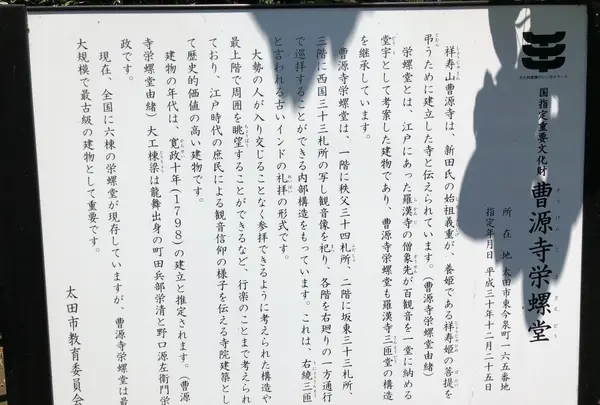 国指定重要文化財 曹源寺栄螺堂
そうげんじさざえどう
所在地 太田市東今泉町一六五番地
指定年月日 平成三十年十二月二十五日
祥寿山曹源寺は、新田氏の始祖義重が、養姫である祥寿姫の菩提を
弔うために建立した寺と伝えられています。（曹源寺栄螺堂由緒）
栄螺堂とは、江戸にあった羅漢寺の僧象先が百観音を一堂に納める
堂宇として考案した建物であり、曹源寺栄螺堂も羅漢寺三匝堂の構造
を継承しています。
曹源寺栄螺堂は、一階に秩父三十四札所、二階に坂東三十三札所、
三階に西国三十三札所の写し観音像を祀り、各階を右廻りの一方通行
で巡拝することができる内部構造をもっています。これは、右繞三匝
と言われる古いインドの礼拝の形式です。
大勢の人が入り交じることなく参拝できるように考えられた構造や
最上階で周囲を眺望することができるなど、行楽のことまで考えられ
ており、江戸時代の庶民による観音信仰の様子を伝える寺院建築とし
て歴史的価値の高い建物です。
建物の年代は、寛政十年（1798）の建立と推定されます。（曹源
寺栄螺堂由緒）大工棟梁は龍舞出身の町田兵部栄清と野口源左衛門栄
政です。
現在、全国に六棟の栄螺堂が現存していますが、曹源寺栄螺堂は最
大規模で最古級の建物として重要です。
太田市教育委員会